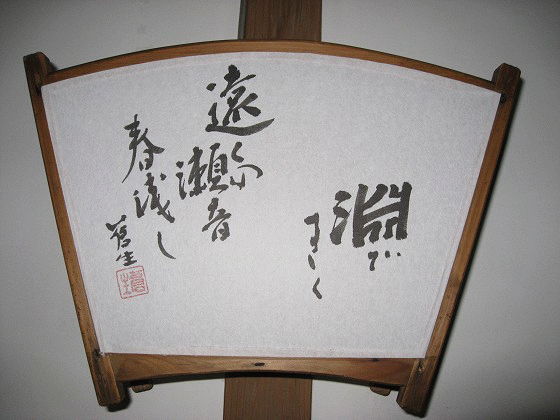 淵で
きく
遠き
瀬音
春浅し
蒼生